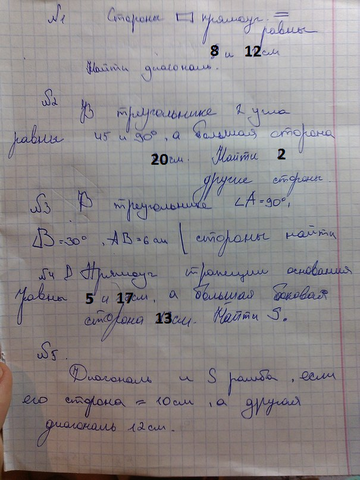 №1 Стороны ▭ прямоуг. =
равны
8 и 12см
Найти диагональ.
№2 В треугольнике 2 угла
равны 45 и 90°, а большая сторона
20см. Найти 2
другие стороны
№3 В треугольнике ∠A=90°,
∠B=30°, AB=6см | стороны найти
№4 В Прямоуг трапеции основания
равны 5 и 17см, а большая боковая
сторона 13см. Найти S.
№5.
Диагональ и S ромба, если
его сторона = 10см, а другая
диагональ 12см.